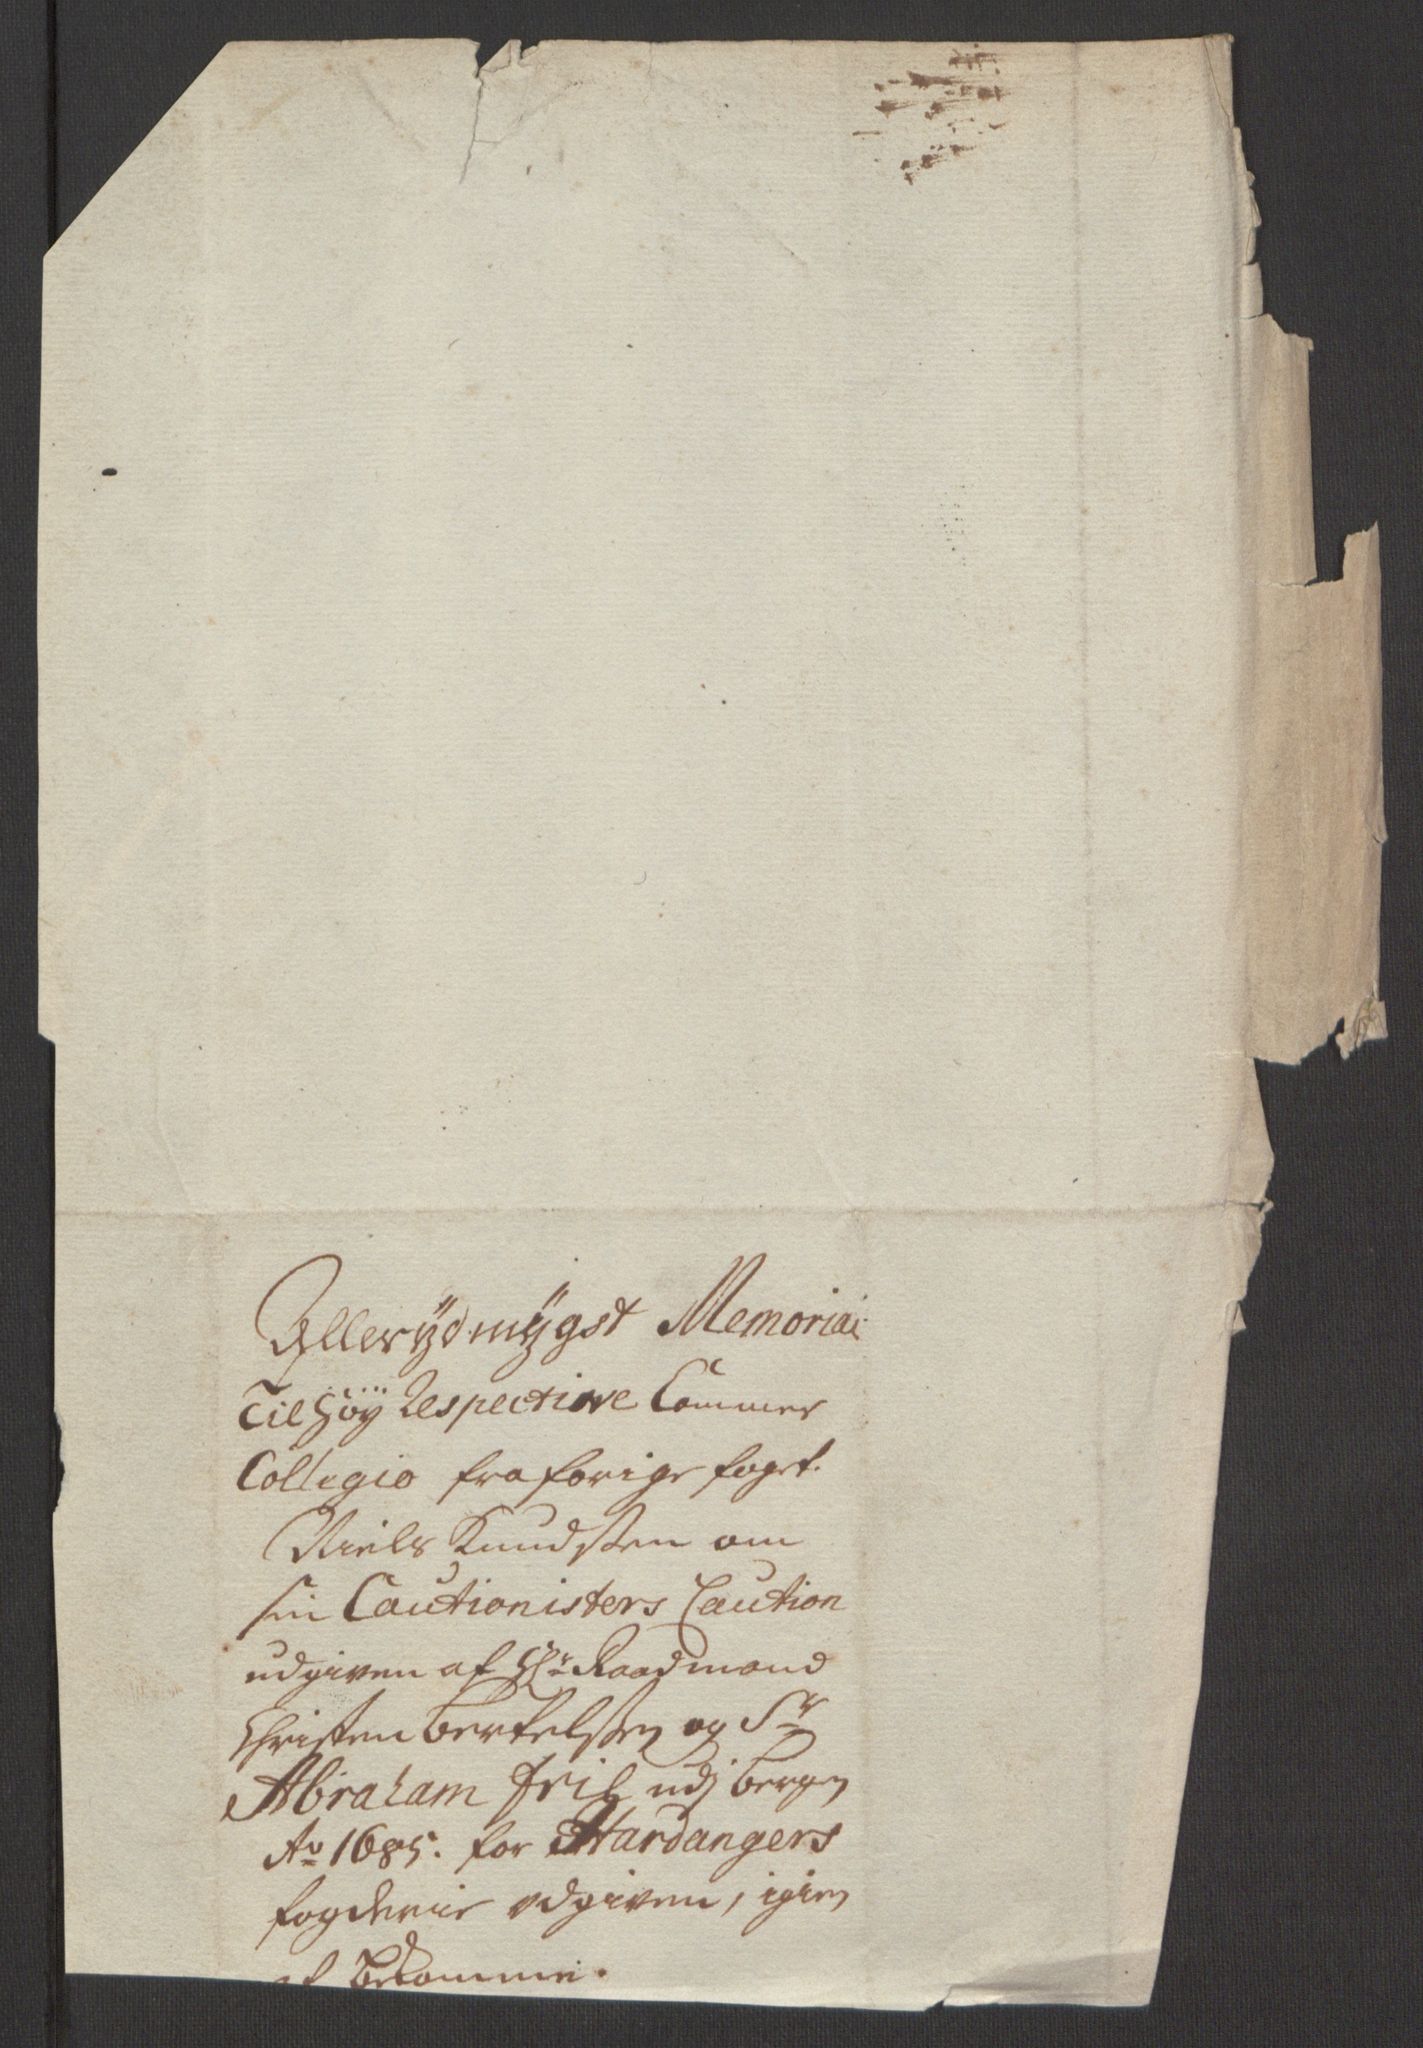 Allerydmÿgst Memorial
Til Höÿ Respective Cammer
Collegio fra forige foget
Niels Knudsen om
sin Cautionisters Caution
udgiven af Hr: Raadmand
Christen Bertelsen og Sr
Abraham udj Bergen
Ao 1685. for Hardangers
fogderie udgiven, igien
at Bekomme.